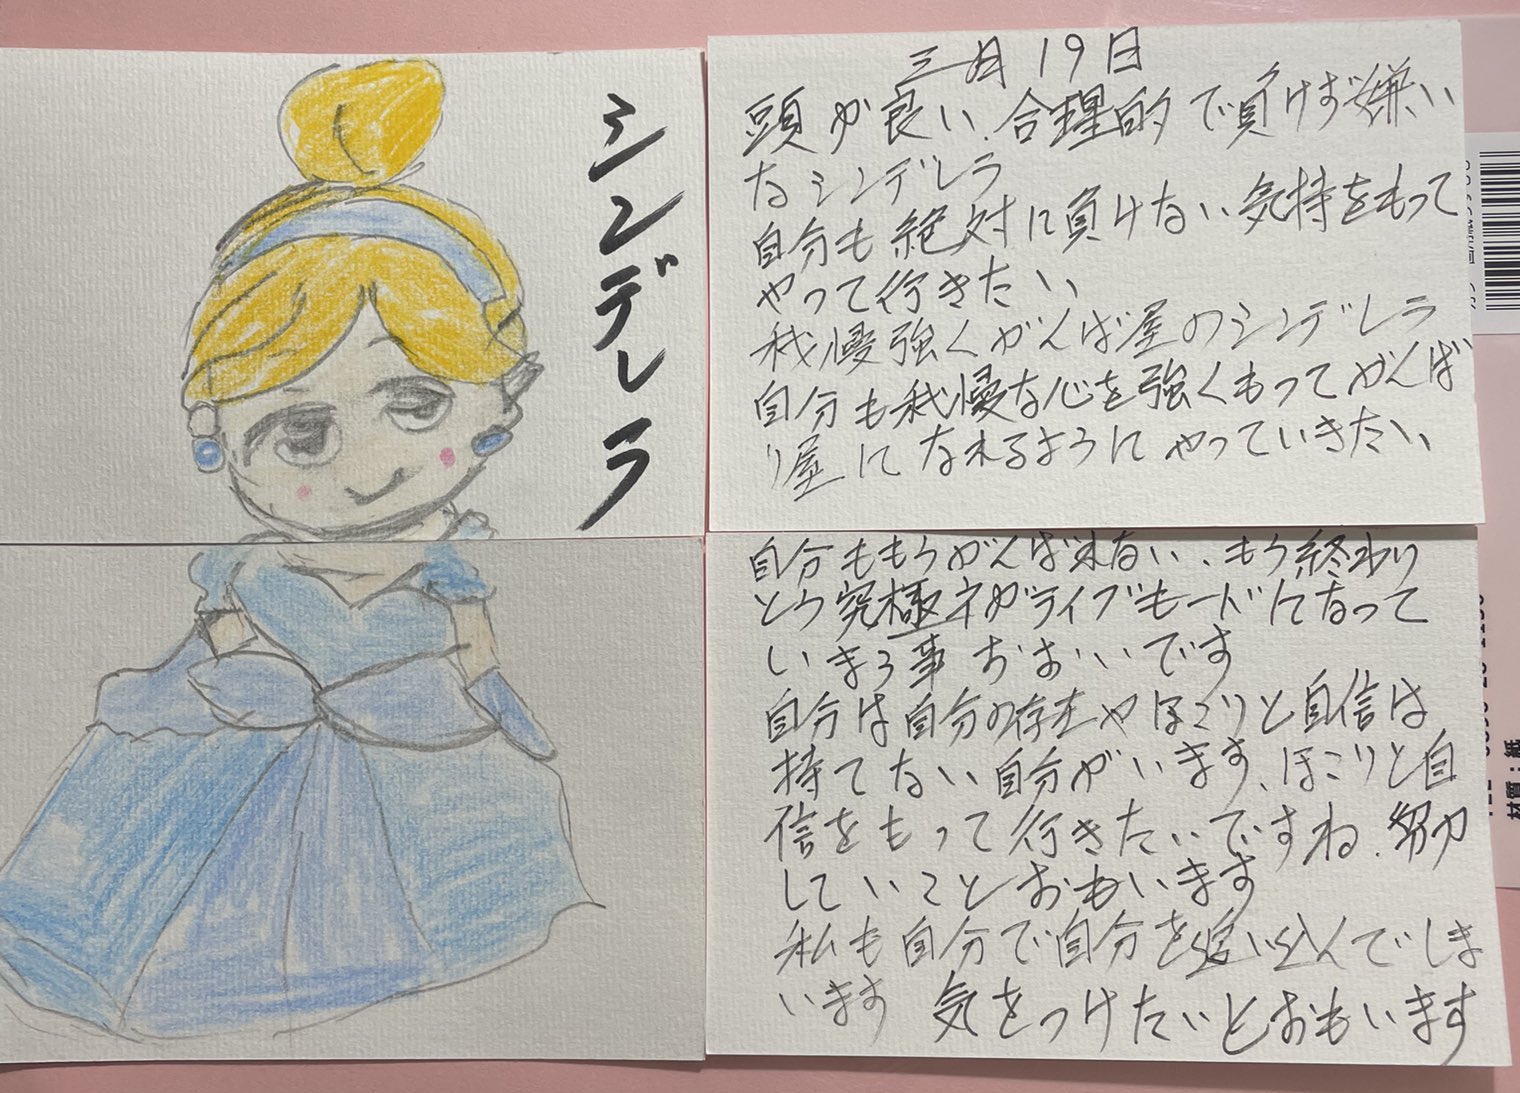 シンデレラ
三月19日
頭が良い、合理的で負けず嫌い
なシンデレラ
自分も絶対に負けない気持をもって
やって行きたい
我慢強くがんば屋のシンデレラ
自分も我慢な心を強くもってがんば
り屋になれるようにやっていきたい
自分ももうがんば来ない、もう終わり
とう究極ネガライブモードになって
いまう事おおいです
自分は自分の存在やほこりと自信は
持てない自分がいます、ほこりと自
信をもって行きたいですね、努力
していことおもいます
私も自分で自分を追い込んでしま
います 気をつけたいとおもいます
材質：紙